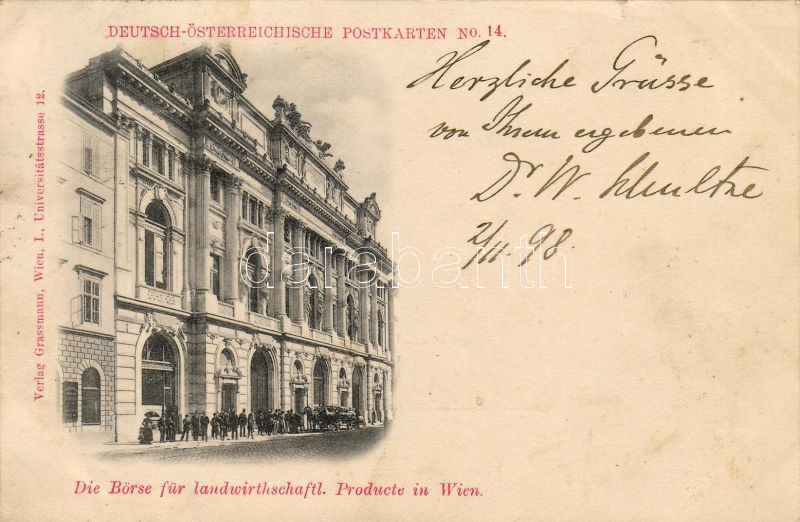 DEUTSCH-ÖSTERREICHISCHE POSTKARTEN NO. 14.
Herzliche Grüsse
von Ihrem ergebenen
Dr W. Schultze
2/11. 98.
Verlag Grassmann, Wien, I., Universitätsstrasse 12.
darabanth
Die Börse für landwirthschaftl. Producte in Wien.